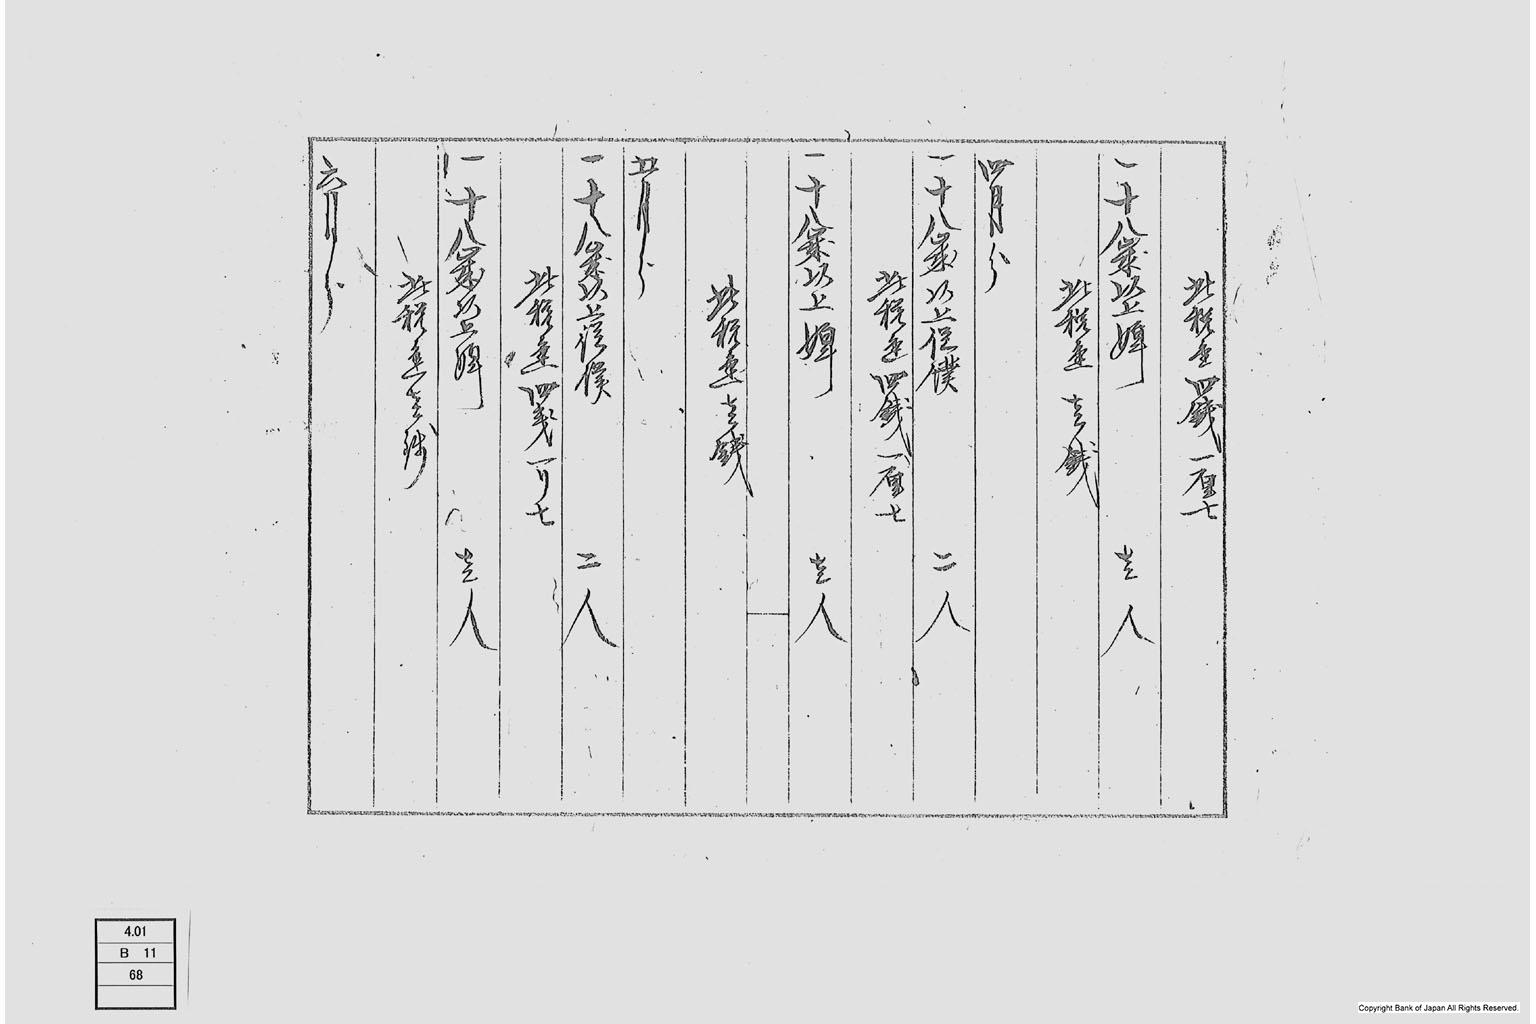 此税金四銭一厘七
一十八歳以上婢 壱人
此税金壱銭
四月分
一十八歳以上従僕 二人
此税金四銭一厘七
一十八歳以上婢 壱人
此税金壱銭
五月分
一十八歳以上従僕 二人
此税金四銭一リ七
一十八歳以上婢 壱人
此税金壱銭
六月分
4.01
B 11
68
Copyright Bank of Japan All Rights Reserved.